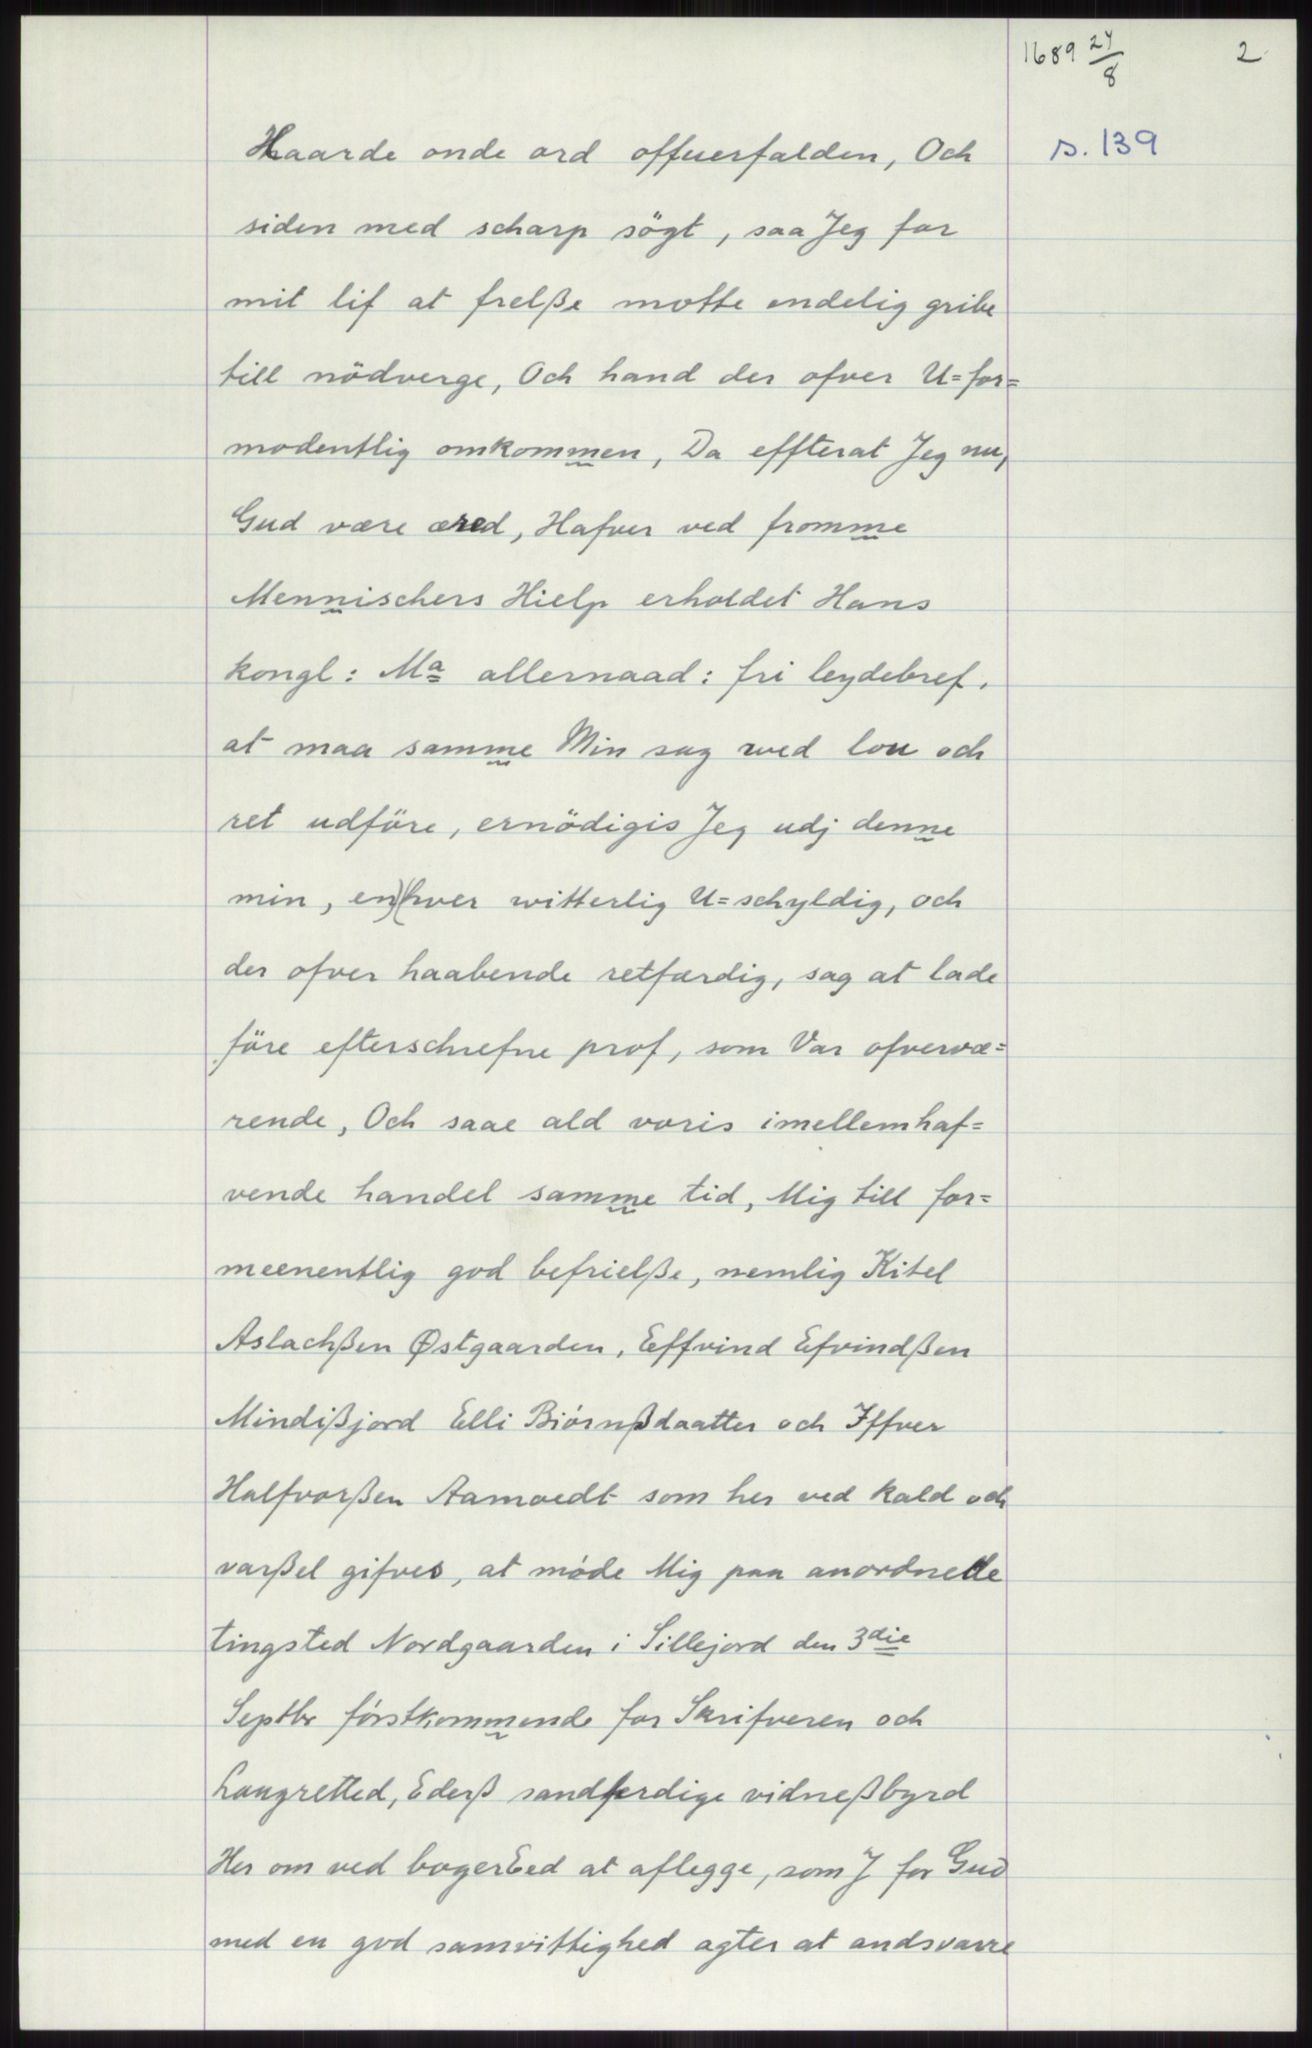 1689 24/8
2
Haarde onde ord offuerfalden, Och
s. 139
siden med scharp sögt, saa Jeg for
mit lif at frelße motte endelig gribe
till nödverge, Och hand der ofver U=for=
modentlig omkommen, Da effterat Jeg nu,
Gud være æred, Hafver ved fromme
Mennischers Hielp erholdet Hans
kongl: Ma allernaad: fri leydebref,
at maa samme Min sag wed lou och
ret udföre, ernödigis Jeg udj denne
min, en)(hver witterlig U=schyldig, och
der ofver haabende retfærdig, sag at lade
före efterschrefne prof, som Var ofvervæ=
rende, Och saae ald voris imellemhaf=
vende handel samme tid, Mig till for=
meenentlig god befrielße, nemlig Kitel
Aslachßen Østgaarden, Eeffvind Efvindßen
Mindißjord Elli Biörnßdaatter och Iffver
Halfvorßen Aamoedt som her ved kald och
varßel gifves, at möde Mig paa anordnede
tingsted Nordgaarden i Sillejord den 3die
Septbr förstkommende for Skrifveren och
Laugretted, Ederß sandferdige vidneßbyrd
Her om ved bogerEed at aflegge, som J for Gud
med en god samvittighed agter at andsvarre